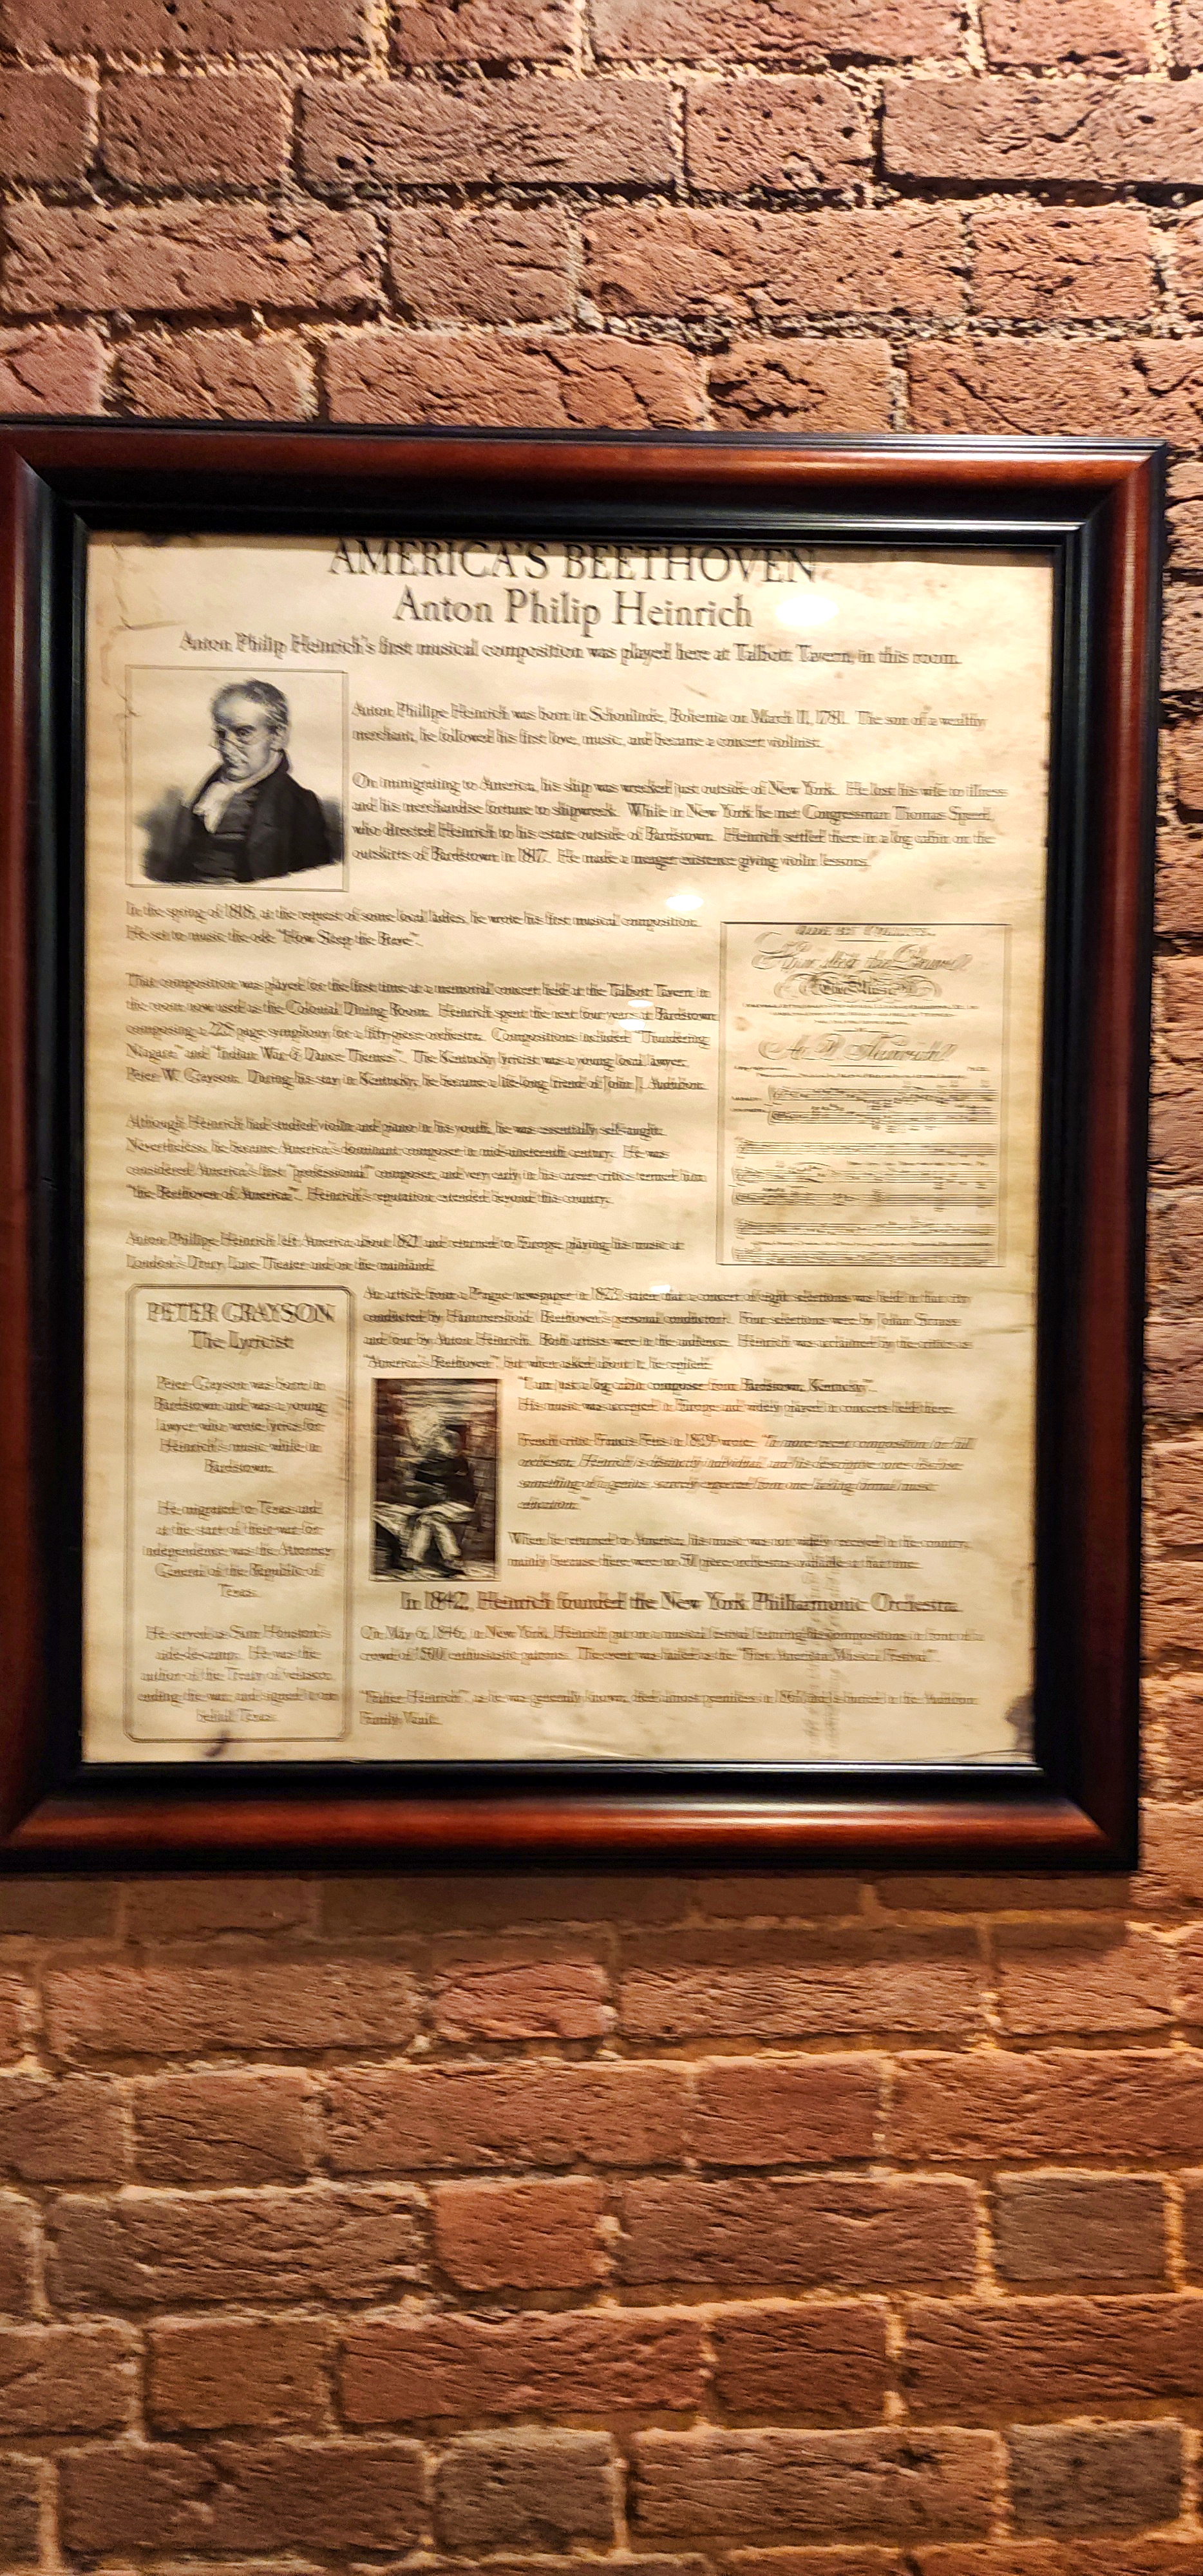 AMERICA'S BEETHOVEN
Anton Philip Heinrich
Anton Philip Heinrich's first musical composition was played here at Talbott Tavern, in this room.
Anton Phillipe Heinrich was born in Schonlinde, Bohemia on March 11, 1781. The son of a wealthy
merchant, he followed his first love, music, and became a concert violinist.
On immigrating to America, his ship was wrecked just outside of New York. He lost his wife to illness
and his merchandise fortune to shipwreck. While in New York he met Congressman Thomas Speed,
who directed Heinrich to his estate outside of Bardstown. Heinrich settled there in a log cabin on the
outskirts of Bardstown in 1817. He made a meager existence giving violin lessons.
In the spring of 1818, at the request of some local ladies, he wrote his first musical composition.
He set to music the ode "How Sleep the Brave".
That composition was played for the first time at a memorial concert held at the Talbott Tavern in
the room now used as the Colonial Dining Room. Heinrich spent the next four years at Bardstown
composing a 228 page symphony for a fifty-piece orchestra. Compositions included "Thundering
Niagara" and "Indian War & Dance Themes". The Kentucky lyricist was a young local lawyer,
Peter W. Grayson. During his stay in Kentucky, he became a life-long friend of John J. Audubon.
Although Heinrich had studied violin and piano in his youth, he was essentially self-taught.
Nevertheless, he became America's dominant composer in mid-nineteenth century. He was
considered America's first "professional" composer, and very early in his career critics termed him
"the Beethoven of America". Heinrich's reputation extended beyond his country.
Anton Phillipe Heinrich left America about 1827 and returned to Europe, playing his music at
London's Drury Lane Theater and on the mainland.
An article from a Prague newspaper in 1822 states that a concert of eight selections was held in that city
conducted by (Beethoven's personal conductor). Four selections were by Johan Strauss
and four by Anton Heinrich. Both artists were in the audience. Heinrich was acclaimed by the critics as
"America's Beethoven", but when asked about it, he replied:
"I am just a log cabin composer from Bardstown, Kentucky".
His music was accepted in Europe and widely played in concerts held there.
French critic Francis Fetis in 1839 wrote: "In more recent composition for full
orchestra, Heinrich is distinctly individual, and his descriptive
something of genius, scarcely expected from one lacking formal music
education."
When he returned to America, his music was not widely received in the country,
mainly because there were no 50 piece orchestras available at that time.
In 1842, Heinrich founded the New York Philharmonic Orchestra.
On May 6, 1846, in New York, Heinrich put on a musical festival featuring his compositions in front of a
crowd of 1500 enthusiastic patrons. The event was hailed as the "First American Musical Festival".
"Father Heinrich", as he was generally known, died almost penniless in 1861 and is buried in the Audubon
Family Vault.
PETER GRAYSON
The Lyricist
Peter Grayson was born in
Bardstown and was a young
lawyer who wrote lyrics for
Heinrich's music while in
Bardstown.
He migrated to Texas and
at the start of their war for
independence was the Attorney
General of the Republic of
Texas.
He served as Sam Houston's
aide-de-camp. He was the
author of the Treaty of Velasco,
ending the war, and signed it on
behalf Texas.
How sleep the Brave
The Music
A. P. Heinrich